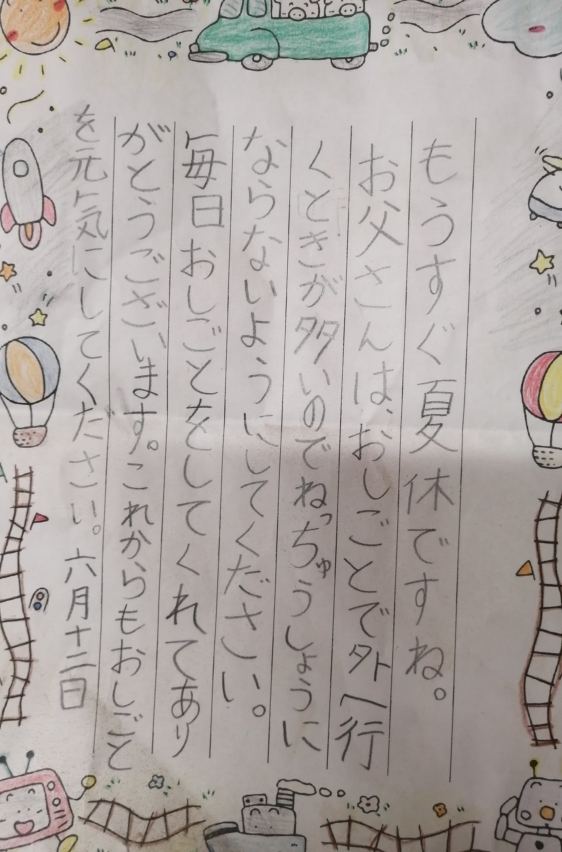 もうすぐ夏休ですね。
お父さんは、おしごとで外へ行
くときが多いのでねっちゅうしょうに
ならないようにしてください。
毎日おしごとをしてくれてあり
がとうございます。これからもおしごと
を元気にしてください。六月十二日